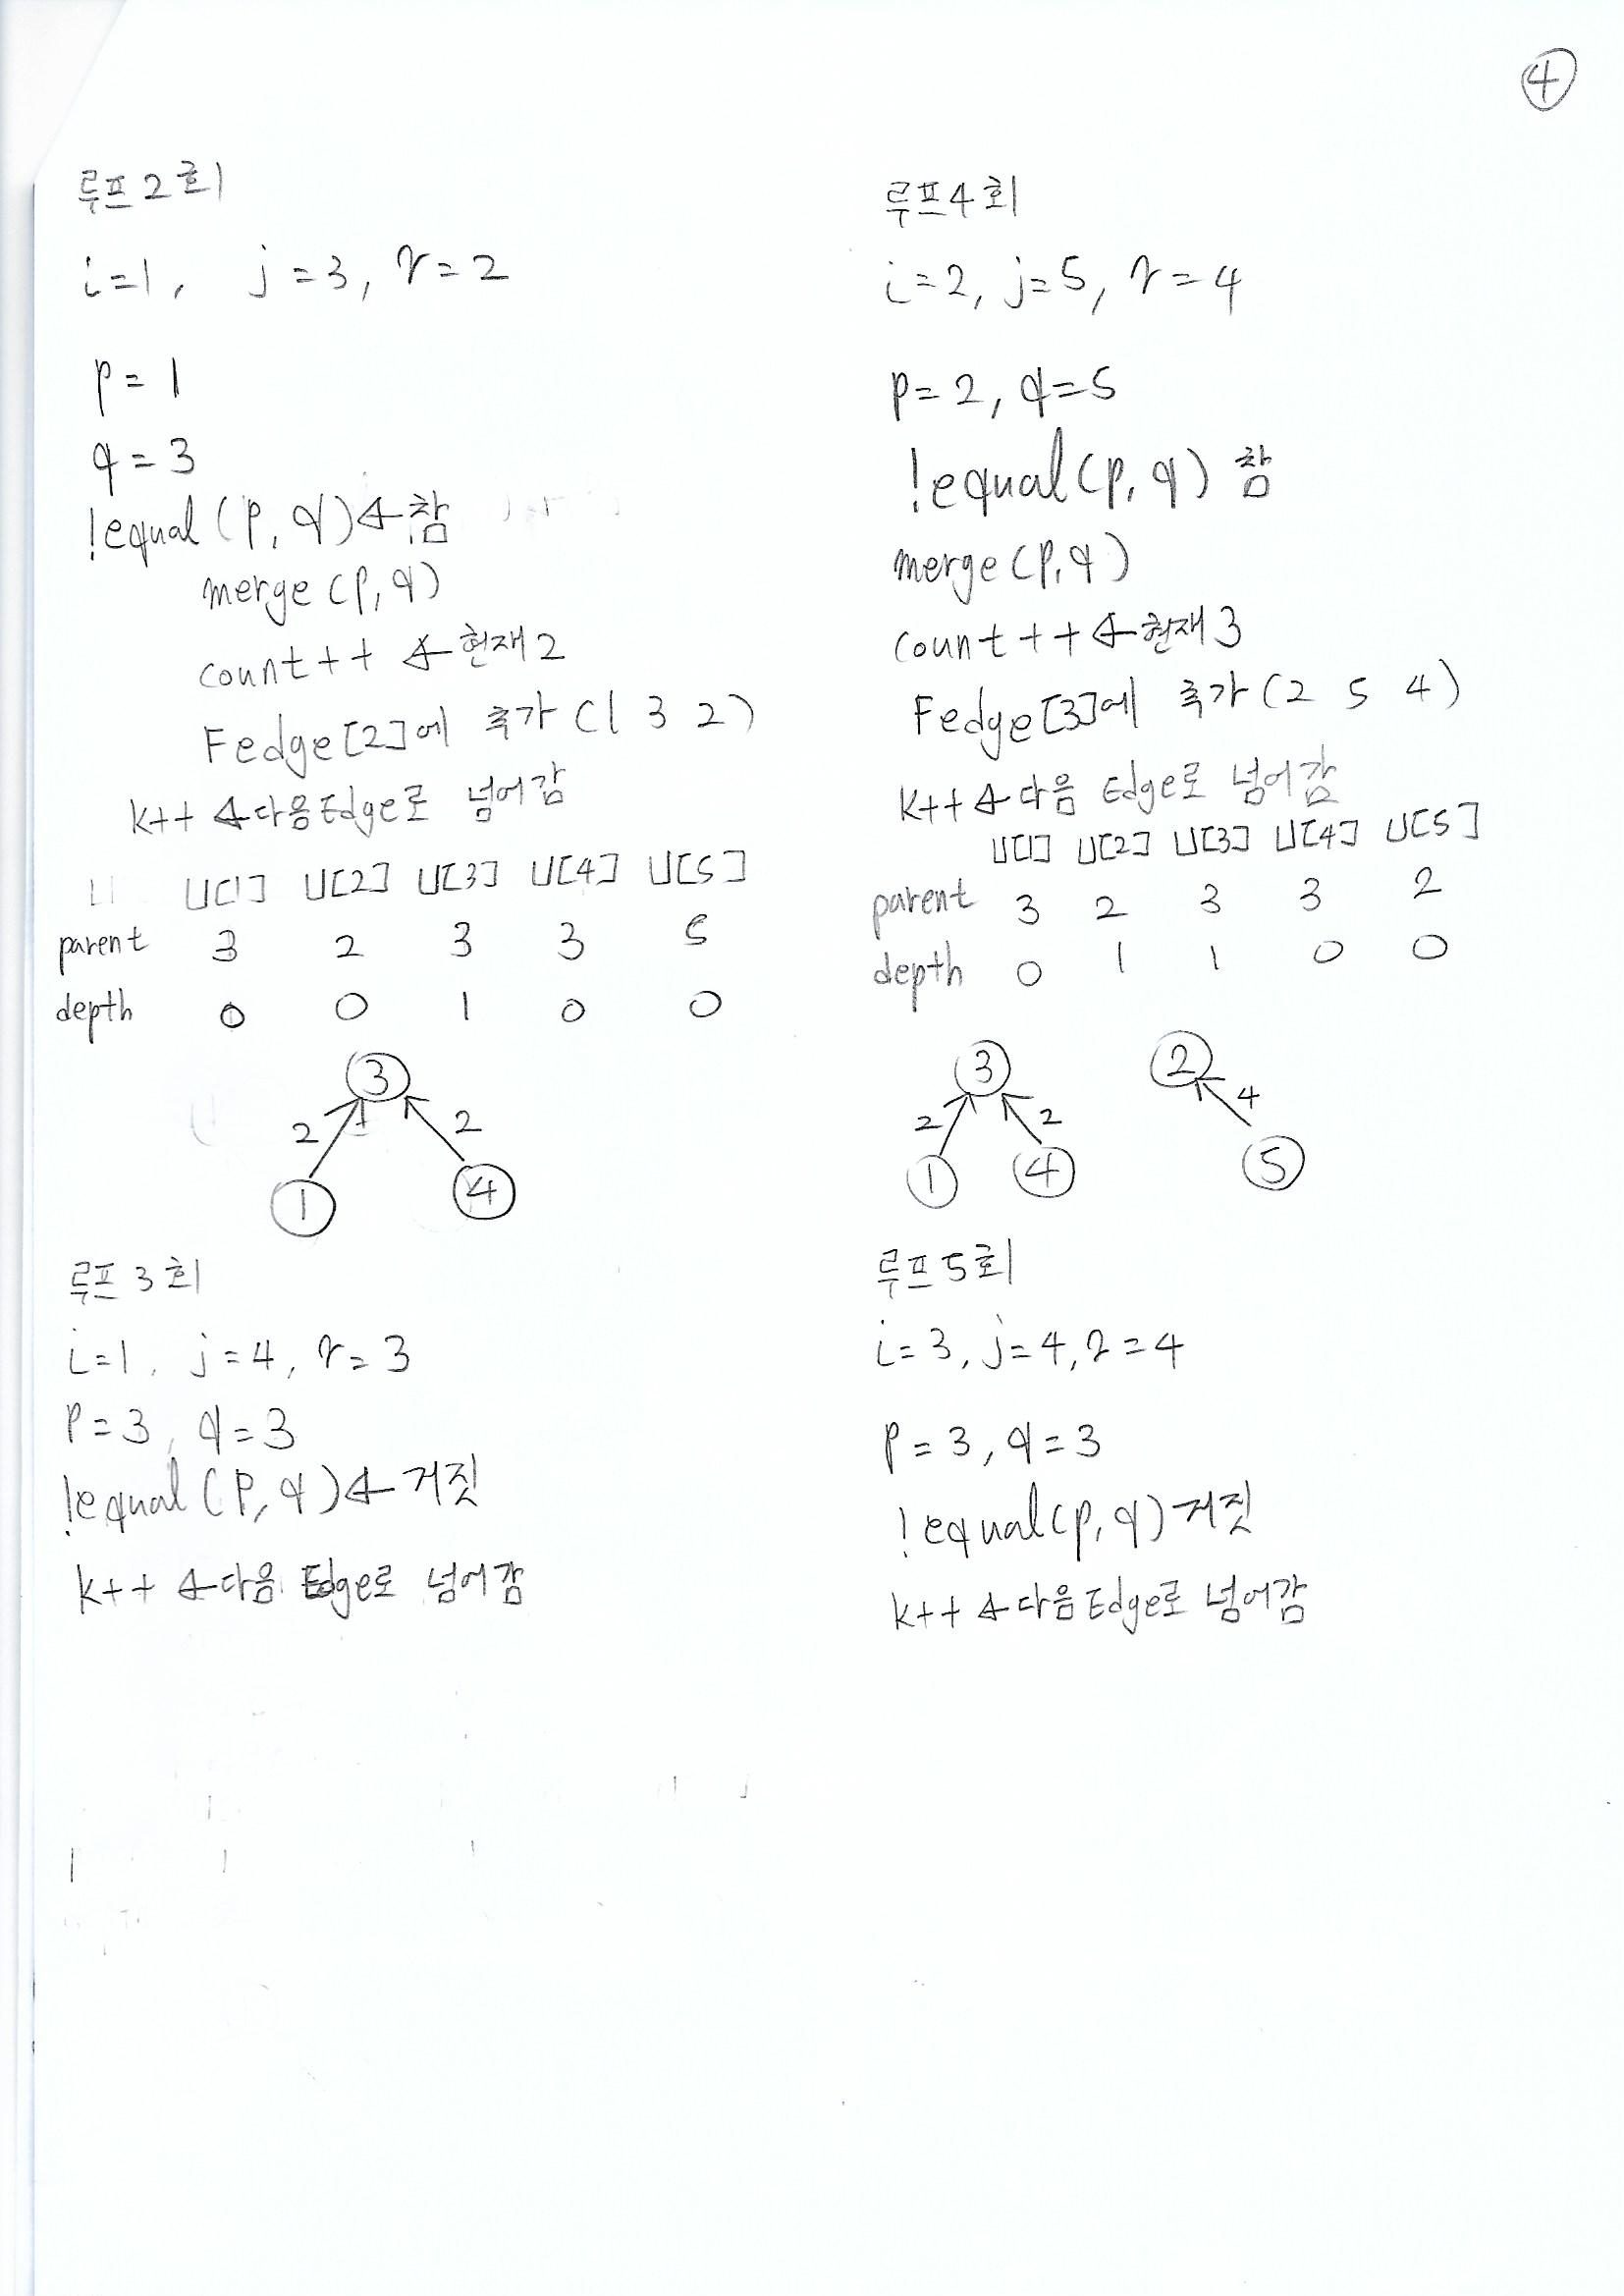 ④
루프 2회
i=1, j=3, r=2
p=1
q=3
!equal(p,q)←참
merge(p,q)
count++ ←현재 2
Fedge[2]에 추가 (1 3 2)
k++ ←다음 Edge로 넘어감
U[1] U[2] U[3] U[4] U[5]
parent 3 2 3 3 5
depth 0 0 1 0 0
3
2 2
1 4
루프 3회
i=1, j=4, r=3
p=3, q=3
!equal(p,q)←거짓
k++ ←다음 Edge로 넘어감
루프 4회
i=2, j=5, r=4
p=2, q=5
!equal(p,q) 참
merge(p,q)
count++←현재 3
Fedge[3]에 추가 (2 5 4)
k++←다음 Edge로 넘어감
U[1] U[2] U[3] U[4] U[5]
parent 3 2 3 3 2
depth 0 1 1 0 0
3 2
2 2 4
1 4 5
루프 5회
i=3, j=4, r=4
p=3, q=3
!equal(p,q) 거짓
k++ ←다음 Edge로 넘어감